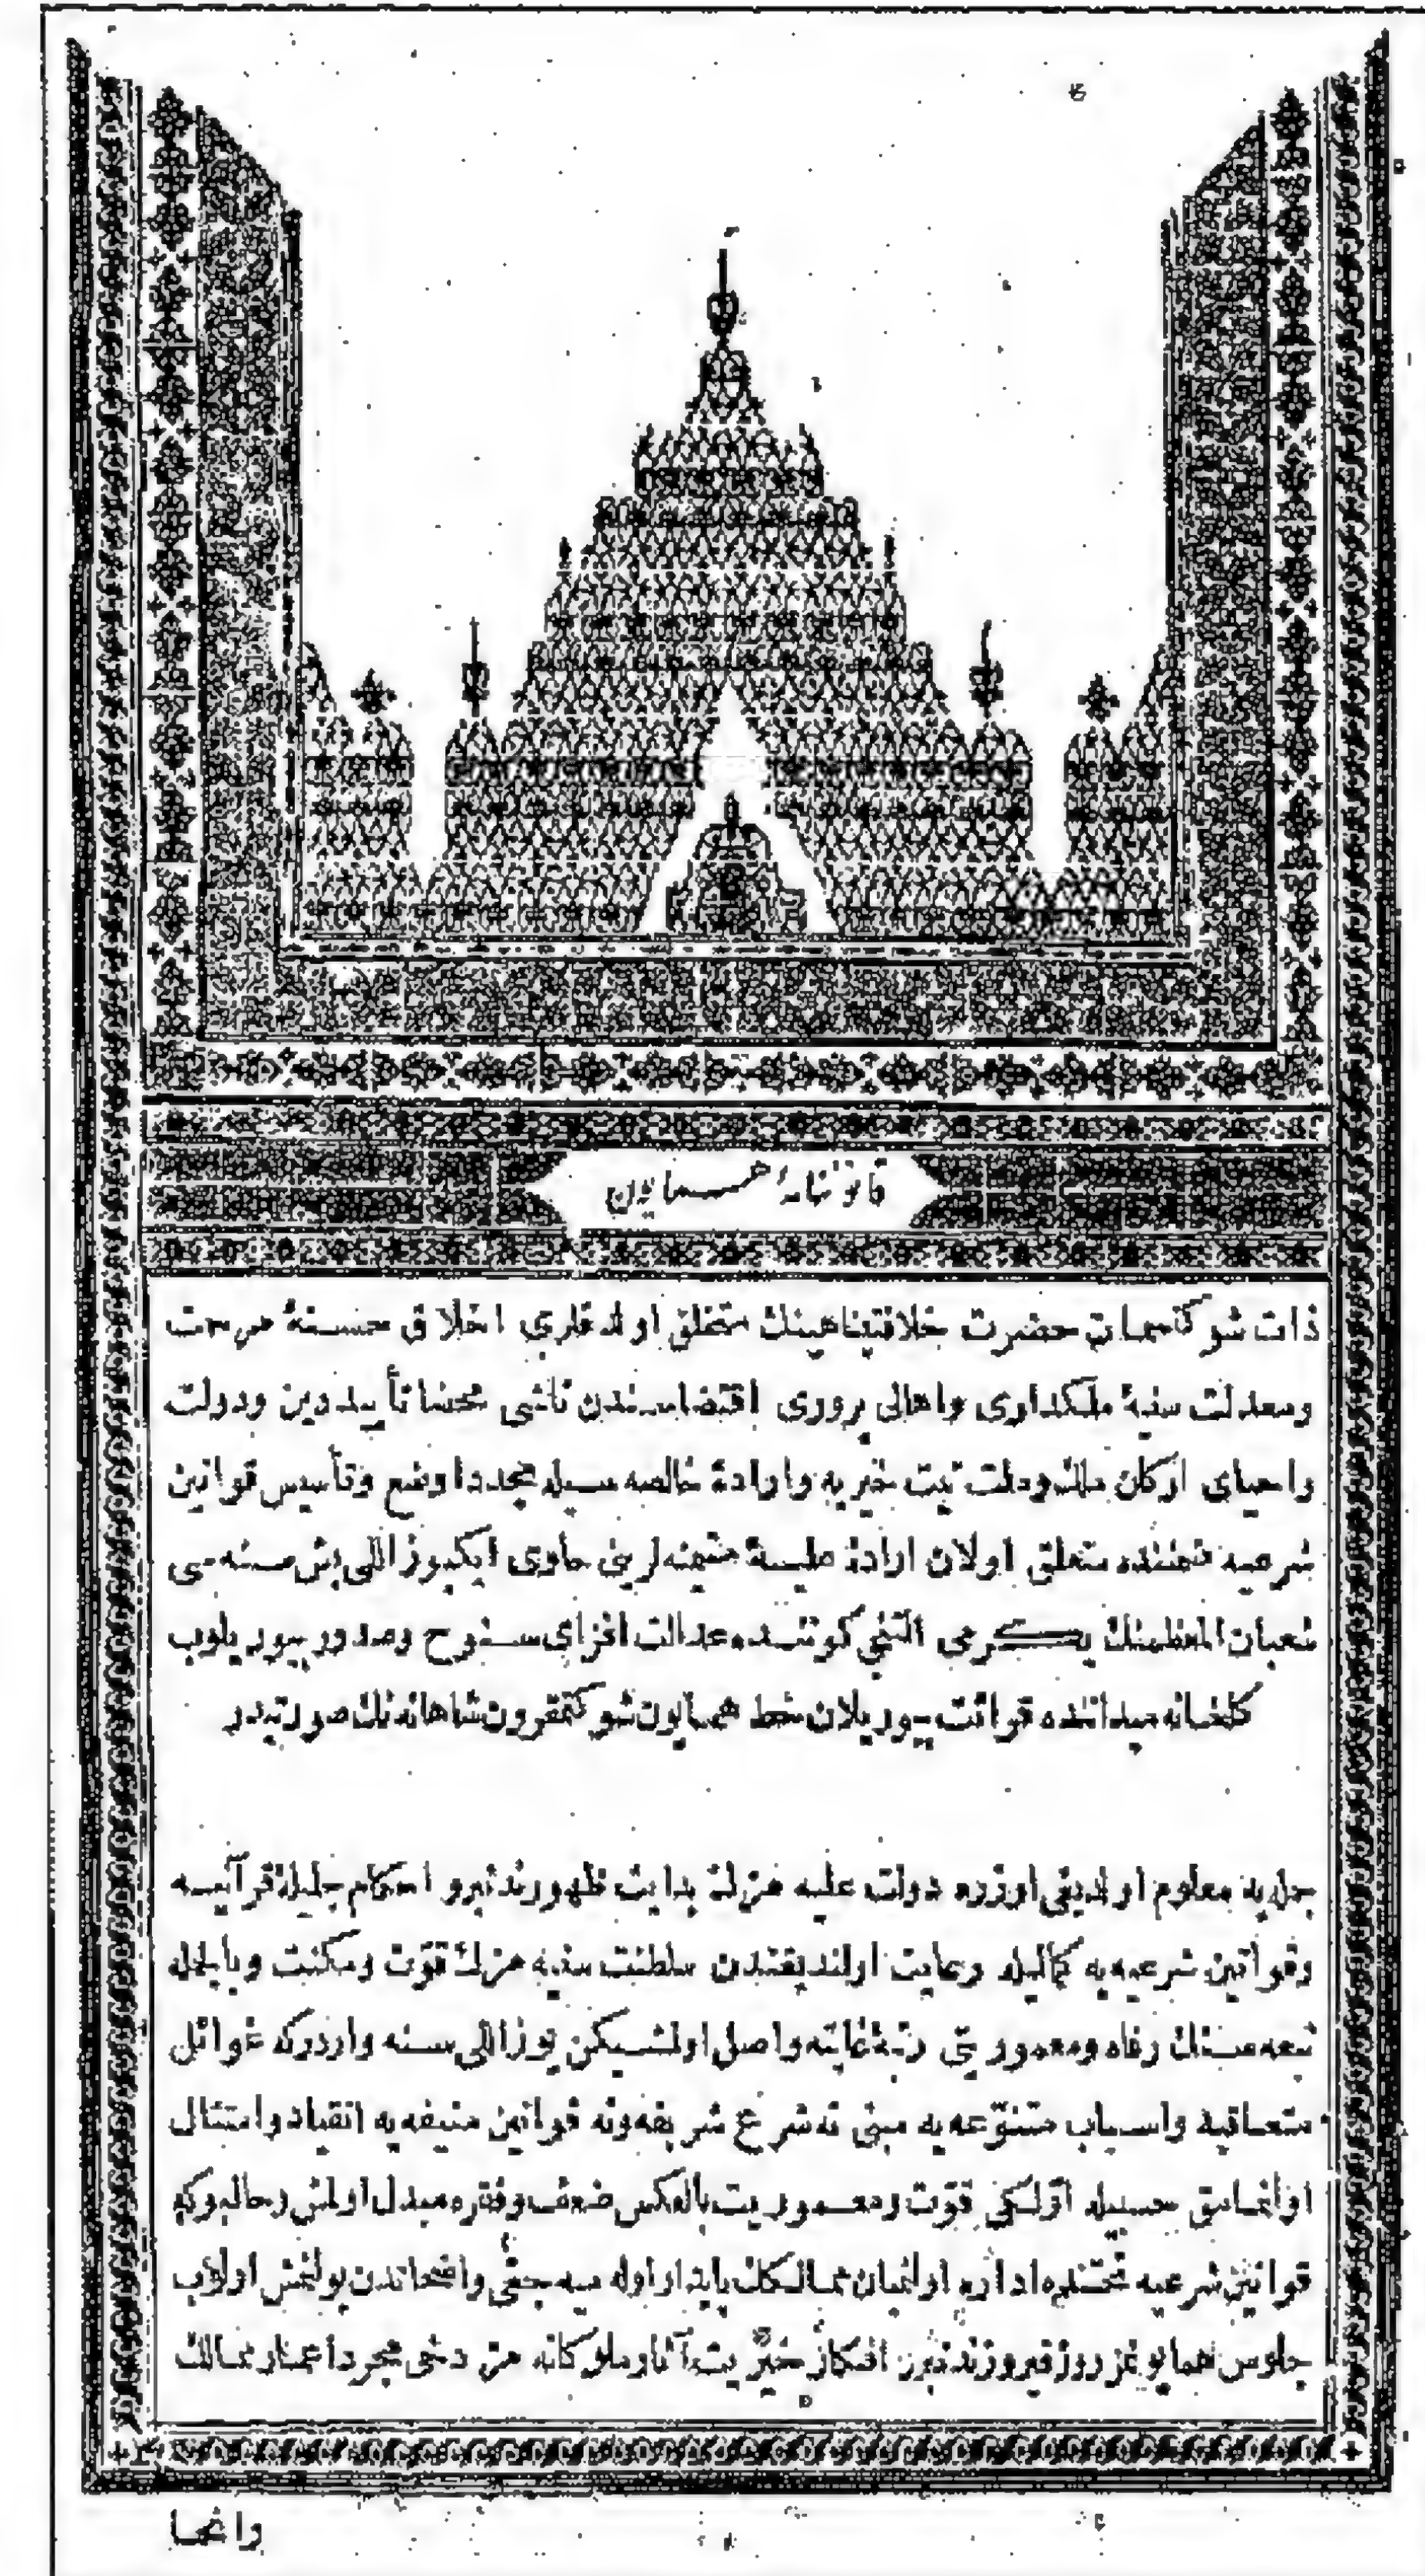 قانوننامهٔ همايون
ذات شوكتسمات حضرت خلافتپناهينك متخلق اولدقلرى اخلاق حسنهٔ مرحمت
ومعدلت سنيهٔ ملكدارى واهالى پرورى اقتضاسندن ناشى محضا تأييد دين ودولت
واحياى اركان ملك وملت نيت خيريه وارادهٔ خالصه سيله مجددا وضع وتأسيس قوانين
شرعيه ضمننده متعلق اولان ارادهٔ عليهٔ متيمنه لرينى حاوى ايكيوز اللى بش سنه سى
شعبان المعظمنك يكرمى التنجى كوننده عدالت افزاى سنوح وصدور بيوريلوب
كلخانه ميداننده قرائت بيوريلان خط همايون شوكتمقرون شاهانه نك صورتيدر
جمله يه معلوم اولديغى اوزره دولت عليه مزك بدايت ظهورندنبرو احكام جليلهٔ قرآنيه
وقوانين شرعيه يه كماليله رعايت اولنديغندن سلطنت سنيه مزك قوّت ومكنت وبالجمله
تبعه سنك رفاه ومعموريتى رتبهٔ غايته واصل اولمشيكن يوز اللى سنه واردركه غوائل
متعاقبه واسباب متنوّعه يه مبنى نه شرع شريفه ونه قوانين منيفه يه انقياد وامتثال
اولنمامق حسبيله اوّلكى قوّت ومعموريت بالعكس ضعف وفقره مبدل اولمش وحالبوكه
قوانين شرعيه تحتنده اداره اولنميان ممالكك پايدار اوله ميه جغى واضحاتدن بولنمش اولوب
جلوس همايونمز روز فيروزندنبرو افكار خيريت آثار ملوكانه مز دخى مجرد اعمار ممالك
وانحا